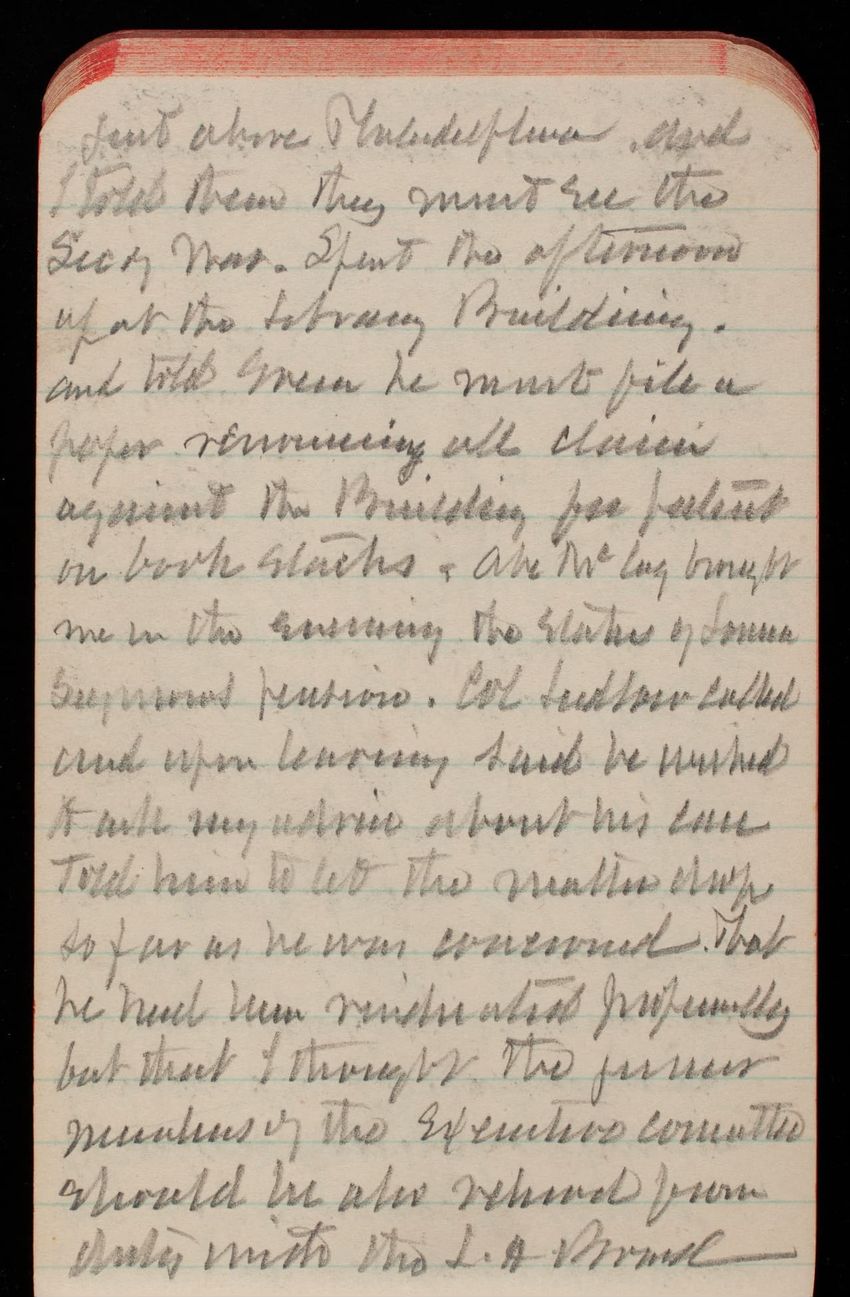 just above Philadelphia, and
I told them they must see the
Secy War. Spent the afternoon
up at the Library Building.
and told Green he must file a
paper renouncing all claim
against the Building for patent
on book stacks. Abe McCoy brought
me in the evening the status of
Seymours pension. Col Ludlow called
and upon leaving said he wished
to ask my advice about his case
Told him to let the matter drop
so far as he was concerned. That
he had been vindicated personally
but that I thought the junior
members of the Executive committee
should be also relieved from
duty with the L. H Board